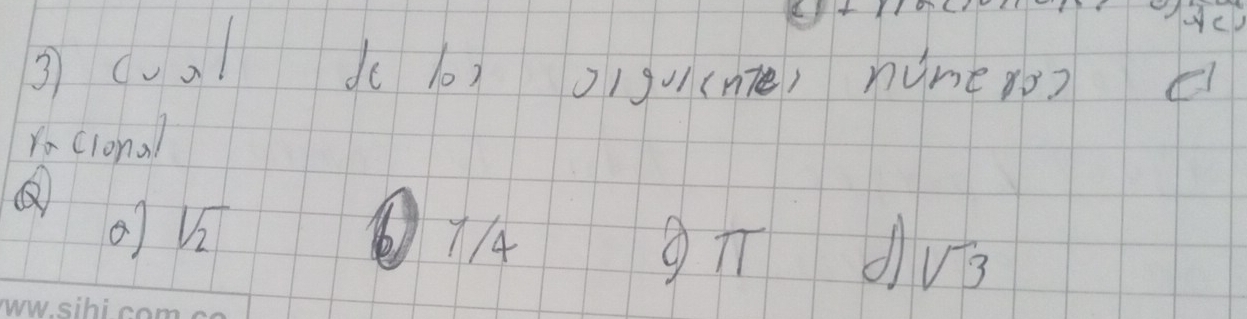 3) Cual de los siguientes números es
racional
Q
a) √2 b) 7/4 c) π d) √3
www.sihi.com.co